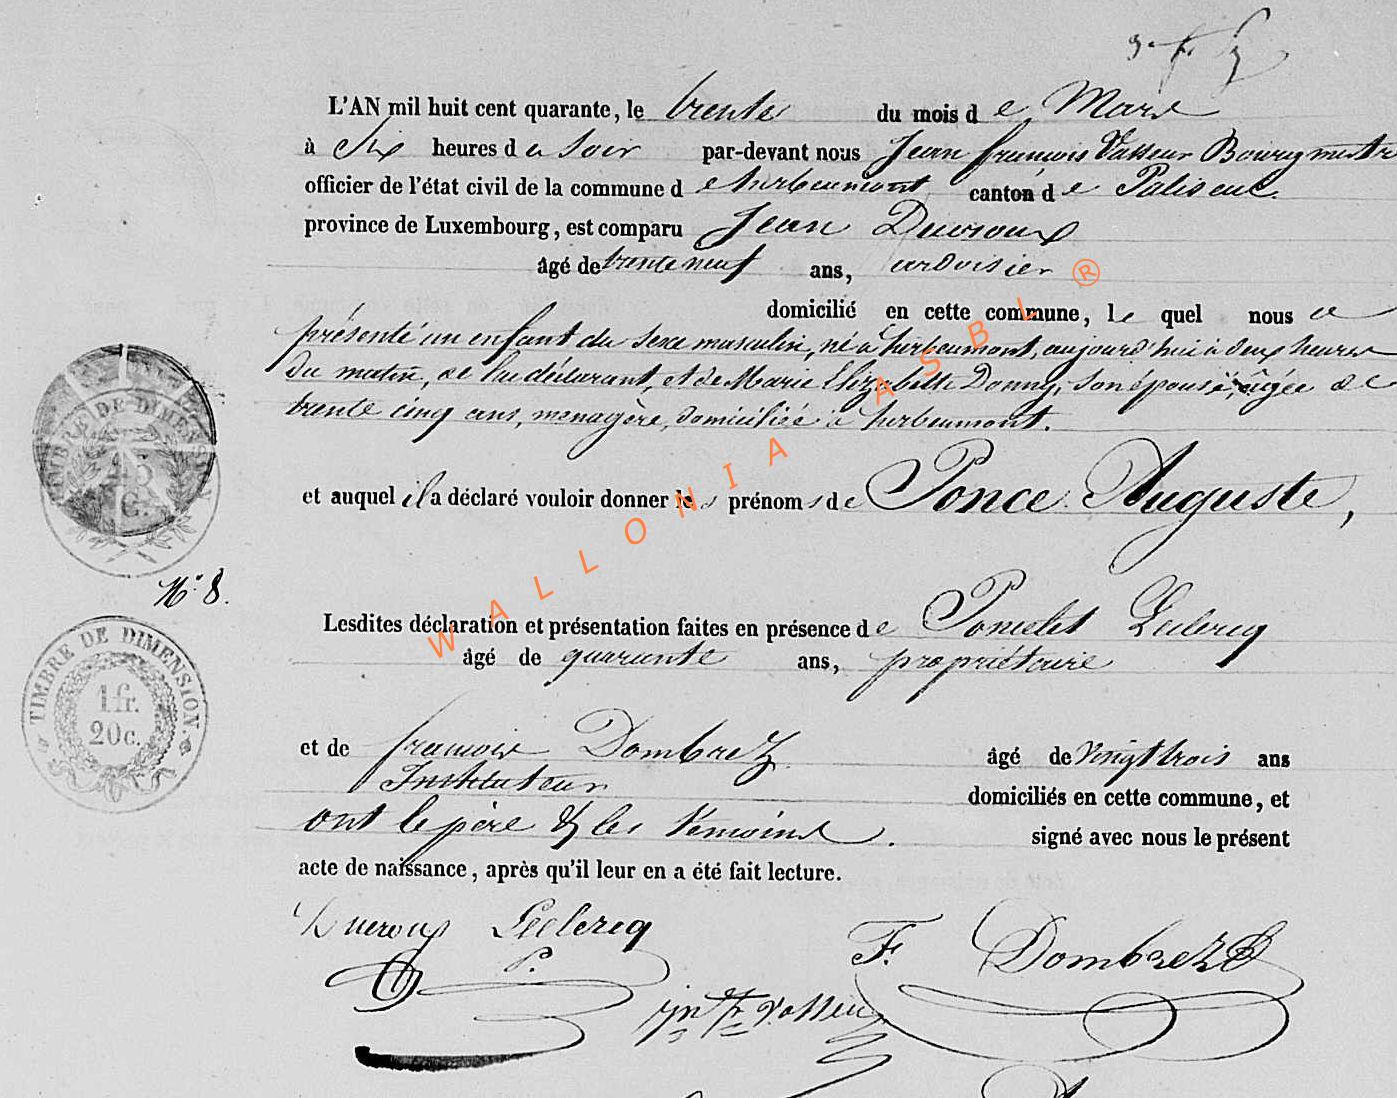 L'AN mil huit cent quarante, le trente du mois de Mars
à Six heures du Soir par-devant nous Jean françois Vasseur Bourgmestre
officier de l'état civil de la commune d'herbeumont canton de Paliseul
province de Luxembourg, est comparu Jean Ducroux
âgé de trente neuf ans, ardoisier
domicilié en cette commune, le quel nous a
présenté un enfant du sexe masculin, né à herbeumont, aujourd'hui à deux heures
du matin, de lui déclarant, et de Marie Elizabette Donny, son épouse, âgée de
trente cinq ans, menagère, domiciliée à herbeumont.
et auquel il a déclaré vouloir donner les prénoms de Ponce Auguste,
N.° 8.
Lesdites déclaration et présentation faites en présence de Poncelet Leclercq
âgé de quarante ans, propriétaire
et de françois Dombrez âgé de vingt trois ans
Instituteur domiciliés en cette commune, et
ont le père & les témoins signé avec nous le présent
acte de naissance, après qu'il leur en a été fait lecture.
Ducroux Leclercq F. Dombrez
P.
jn fr Vasseur
TIMBRE DE DIMENSION
45
C.
TIMBRE DE DIMENSION.
1 fr.
20c.
WALLONIA ASBL ®